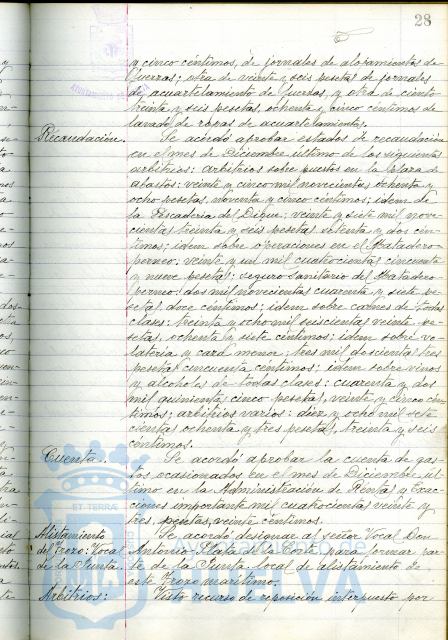 28
y cinco céntimos, de jornales de alojamientos de
Guerras; otra de veinte y seis pesetas de jornales
de acuartelamiento de Guerras, y otra de ciento
treinta y seis pesetas, ochenta y cinco céntimos de
lavado de ropas de acuartelamientos.
Recaudación. Se acordó aprobar estados de recaudación
en el mes de Diciembre último de los siguientes
arbitrios: arbitrios sobre puestos en la Plaza de
abastos: veinte y cinco mil novecientas ochenta y
ocho pesetas, noventa y cinco céntimos; idem de
la Pescadería del Dique: veinte y siete mil nove
cientas treinta y seis pesetas setenta y dos cén
timos; idem sobre operaciones en el Matadero
porcino: veinte y un mil cuatrocientas cincuenta
y nueve pesetas; seguro Sanitario del Matadero
porcino: dos mil novecientas cuarenta y siete pe
setas doce céntimos; idem sobre carnes de todas
clases: treinta y ocho mil seiscientas veinte pe
setas, ochenta y siete céntimos; idem sobre vo
latería y caza menor: tres mil doscientas tres
pesetas cincuenta céntimos; idem sobre vinos
y alcoholes de todas clases: cuarenta y dos
mil quinientas cinco pesetas, veinte y cinco cén
timos; arbitrios varios: diez y ocho mil sete
cientas ochenta y tres pesetas, treinta y seis
céntimos.
Cuenta. Se acordó aprobar la cuenta de gas
tos ocasionados en el mes de Diciembre úl
timo en la Administración de Rentas y Exac
ciones importante mil cuatrocientas veinte y
tres pesetas, veinte céntimos.
Alistamiento Se acordó designar al señor Vocal Don
del Trozo: Vocal Antonio Plata de la Corte, para formar par
de la Junta. te de la Junta local de alistamiento de
este Trozo marítimo.
Arbitrios: Visto recurso de reposición interpuesto por